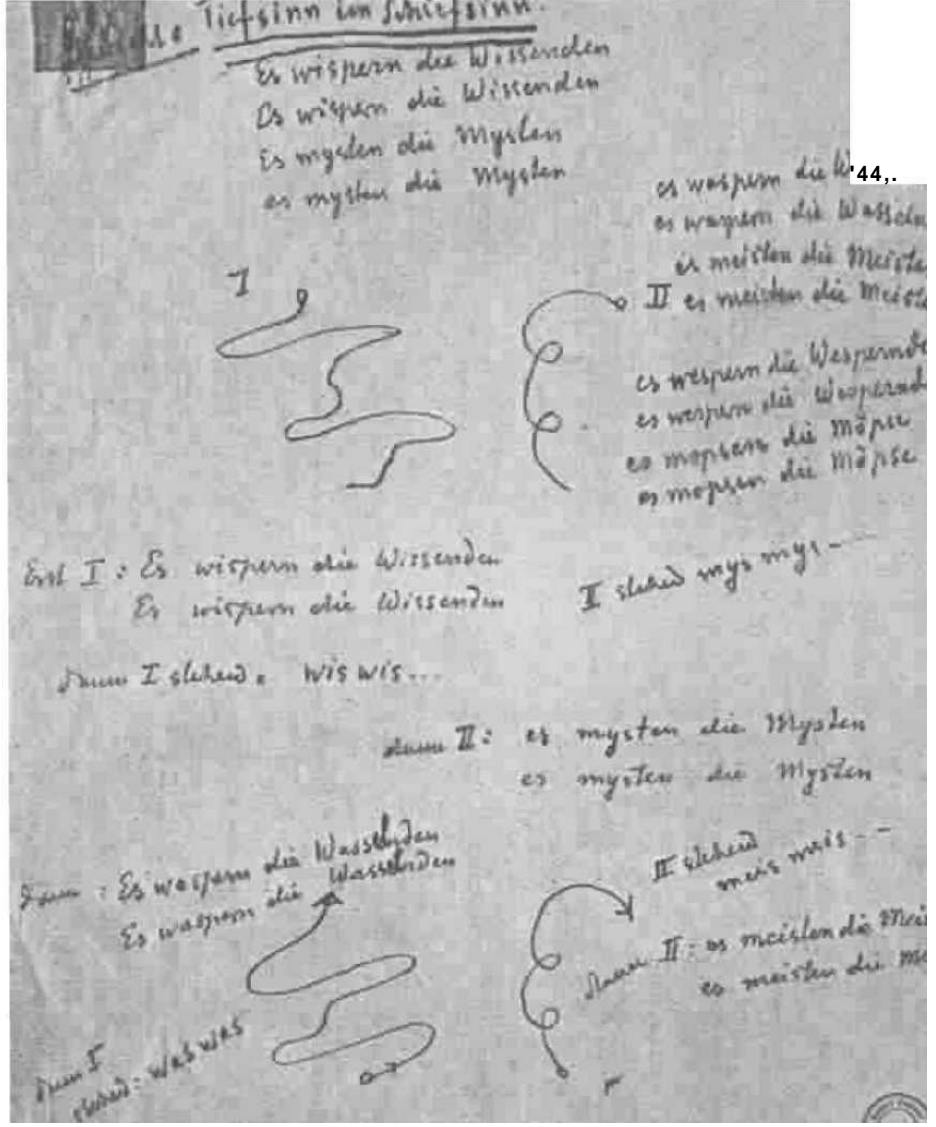 Tiefsinn im Schiefsinn.
Es wispern die Wissenden
Es wispern die Wissenden
Es mysten die Mysten
es mysten die Mysten
'44,.
es waspern die
es waspern die
es meisten die
I
II es meisten die
es wespern die
es wespern die
es mopsen die Möpse
es mopsen die Möpse
Erst I: Es wispern die Wissenden
Es wispern die Wissenden
II stehend mys mys -
Dann I stehend. wis wis...
dann II: es mysten die Mysten
es mysten die Mysten
Dann: Es waspern die
Es waspern die
II stehend
meis meis - -
dann II: es meisten die
es meisten die
dann I
stehend: was was